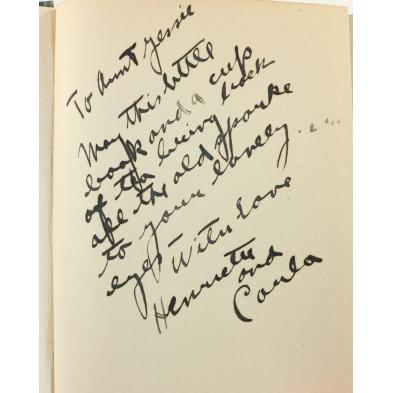 To Aunt Jessie
May this little
book and a cup
of tea bring back
all the old sparke
to your lovely
eyes - With love
Henriette
and
Carla